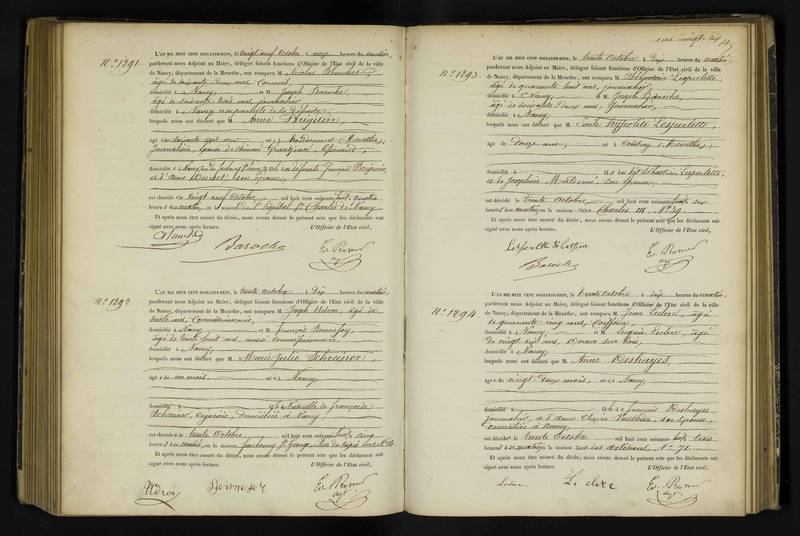 cent vingt six
N° 1291.
L'AN MIL HUIT CENT SOIXANTE-HUIT, le vingt neuf Octobre à onze heures du matin,
pardevant nous Adjoint au Maire, délégué faisant fonctions d'Officier de l'Etat civil de la ville
de Nancy, département de la Meurthe, ont comparu M. Nicolas
âgé de soixante deux ans,
domicilié à Nancy et M. Joseph Baroche,
âgé de soixante trois ans, journalier
domicilié à Nancy
lesquels nous ont déclaré que M. Anne
âgée de soixante sept ans né à (Meurthe),
journalière,
domiciliée à Nancy,
et d'Anne son épouse
est décédée le vingt neuf Octobre mil huit cent soixante-huit, à quatre
heures du matin, en St Charles de Nancy
Et après nous être assuré du décès, nous avons dressé le présent acte que les déclarants ont
signé avec nous après lecture. L'Officier de l'Etat civil,
Baroche
N° 1292.
L'AN MIL HUIT CENT SOIXANTE-HUIT, le trente octobre à dix heures du matin,
pardevant nous Adjoint au Maire, délégué faisant fonctions d'Officier de l'Etat civil de la ville
de Nancy, département de la Meurthe, ont comparu M. Joseph âgé de
trente ans, Commissionnaire,
domicilié à Nancy et M. François Bonnefoy,
âgé de trente huit ans, aussi commissionnaire
domicilié à Nancy
lesquels nous ont déclaré que M. Marie Julie Schreiner,
âgée de un mois, né à Nancy
domicilié à fille Naturelle de françoise
Schreiner, domiciliée à Nancy
est décédée le trente Octobre mil huit cent soixante-huit, à cinq
heures du matin en la maison faubourg St George,
Et après nous être assuré du décès, nous avons dressé le présent acte que les déclarants ont
signé avec nous après lecture. L'Officier de l'Etat civil,
N° 1293.
L'AN MIL HUIT CENT SOIXANTE-HUIT, le trente Octobre à dix heures du matin,
pardevant nous Adjoint au Maire, délégué faisant fonctions d'Officier de l'Etat civil de la ville
de Nancy, département de la Meurthe, ont comparu M. Sébastien
âgé de quarante huit ans, journalier
domicilié à Nancy, et M. Joseph Baroche,
âgé de soixante deux ans, Journalier,
domicilié à Nancy
lesquels nous ont déclaré que M. Emile Hyppolite
âgé de Douze ans, né à (Meurthe),
domicilié à fils de dit Sébastien
et de Joséphine son épouse
est décédé le trente Octobre mil huit cent soixante-huit, à six
heures du matin en la maison rue Charles III, N° 39
Et après nous être assuré du décès, nous avons dressé le présent acte que les déclarants ont
signé avec nous après lecture. L'Officier de l'Etat civil,
Baroche
N° 1294.
L'AN MIL HUIT CENT SOIXANTE-HUIT, le trente Octobre à dix heures du matin,
pardevant nous Adjoint au Maire, délégué faisant fonctions d'Officier de l'Etat civil de la ville
de Nancy, département de la Meurthe, ont comparu M. Jean Leclerc, âgé
de quarante cinq ans, Coiffeur
domicilié à Nancy et M. Eugène Leclerc, âgé
de vingt sept ans, Doreur sur bois,
domicilié à Nancy
lesquels nous ont déclaré que M. Anne Deshayes,
âgée de vingt-deux mois, né à Nancy,
domicilié à fille de françois Deshayes,
journalier, et d'Anne son épouse,
domiciliés à Nancy
est décédée le trente Octobre mil huit cent soixante-huit, à trois
heures du matin en la maison rue N° 71
Et après nous être assuré du décès, nous avons dressé le présent acte que les déclarants ont
signé avec nous après lecture. L'Officier de l'Etat civil,
Leclerc Leclerc